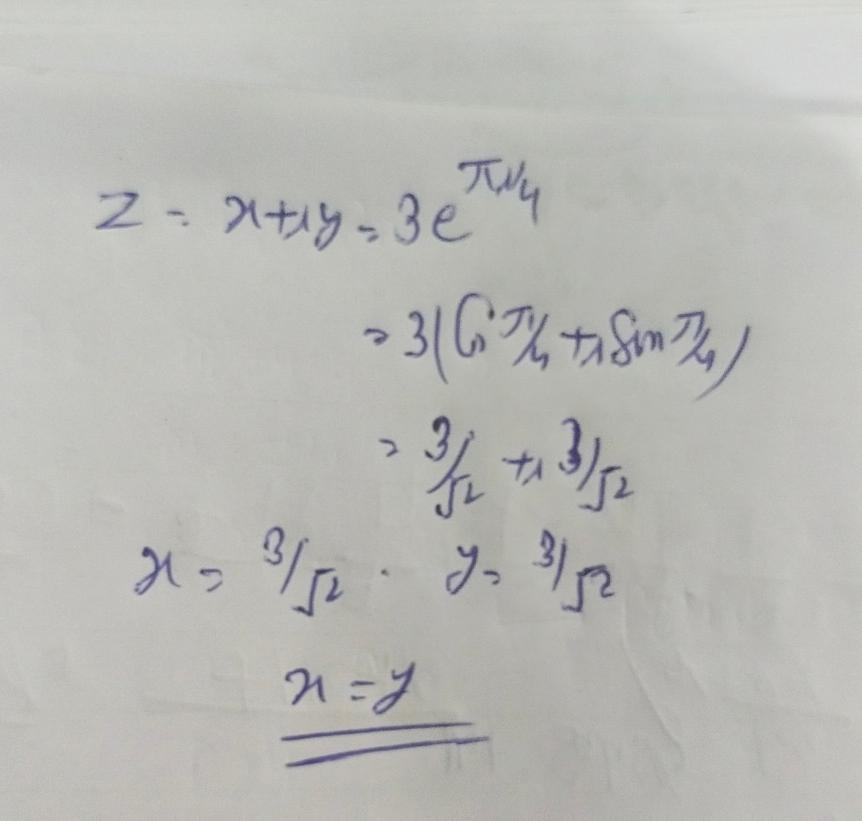 z = x+iy = 3e^πi/4
= 3(Cos π/4 + i Sin π/4)
= 3/√2 + i 3/√2
x = 3/√2 . y = 3/√2
x = y